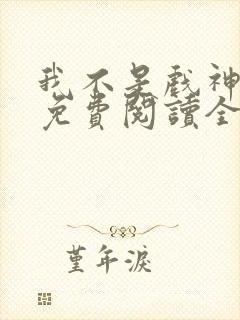 我不是戲神
免費閱讀全
堇年淚